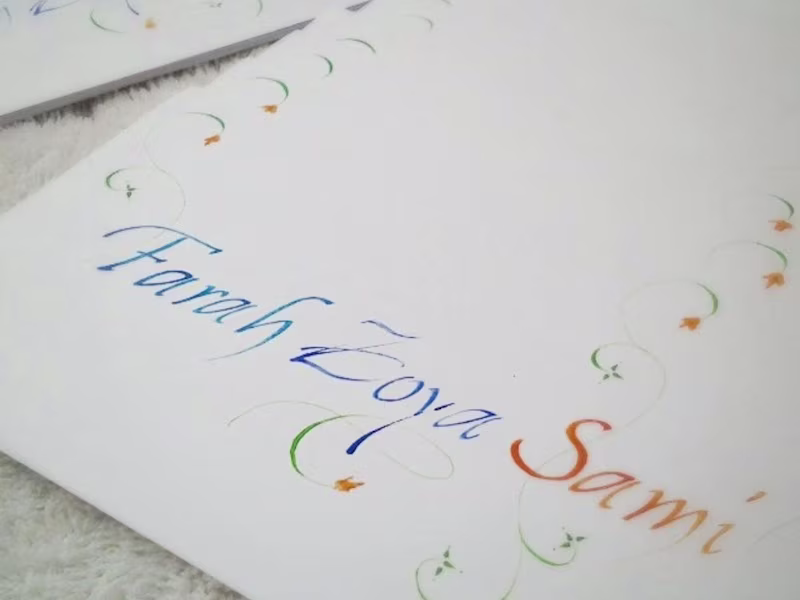 Farah Zoya Sami